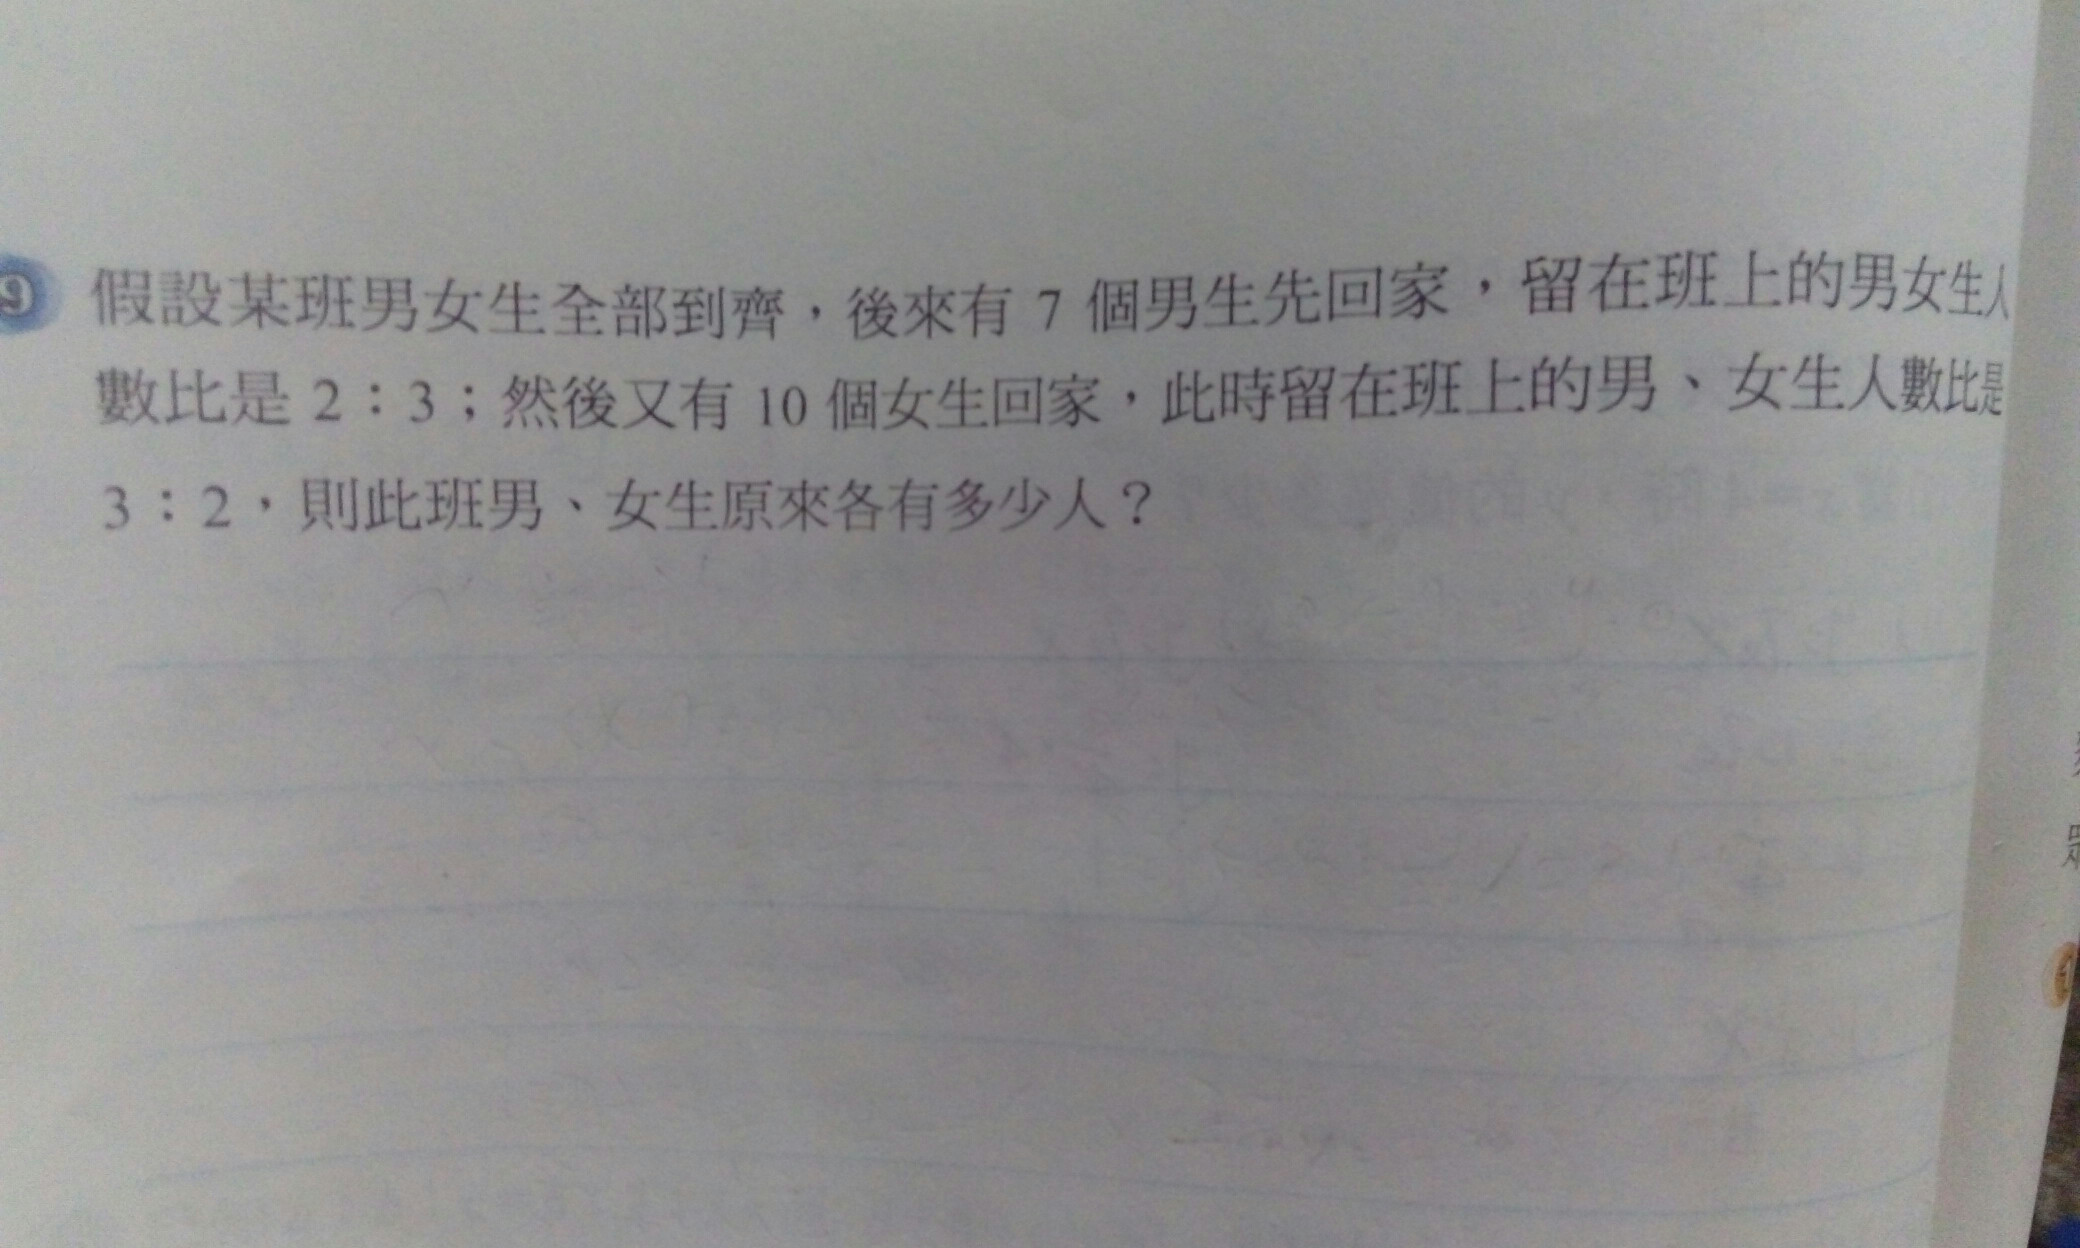 9 假設某班男女生全部到齊，後來有 7 個男生先回家，留在班上的男女生人
數比是 2：3；然後又有 10 個女生回家，此時留在班上的男、女生人數比是
3：2，則此班男、女生原來各有多少人？